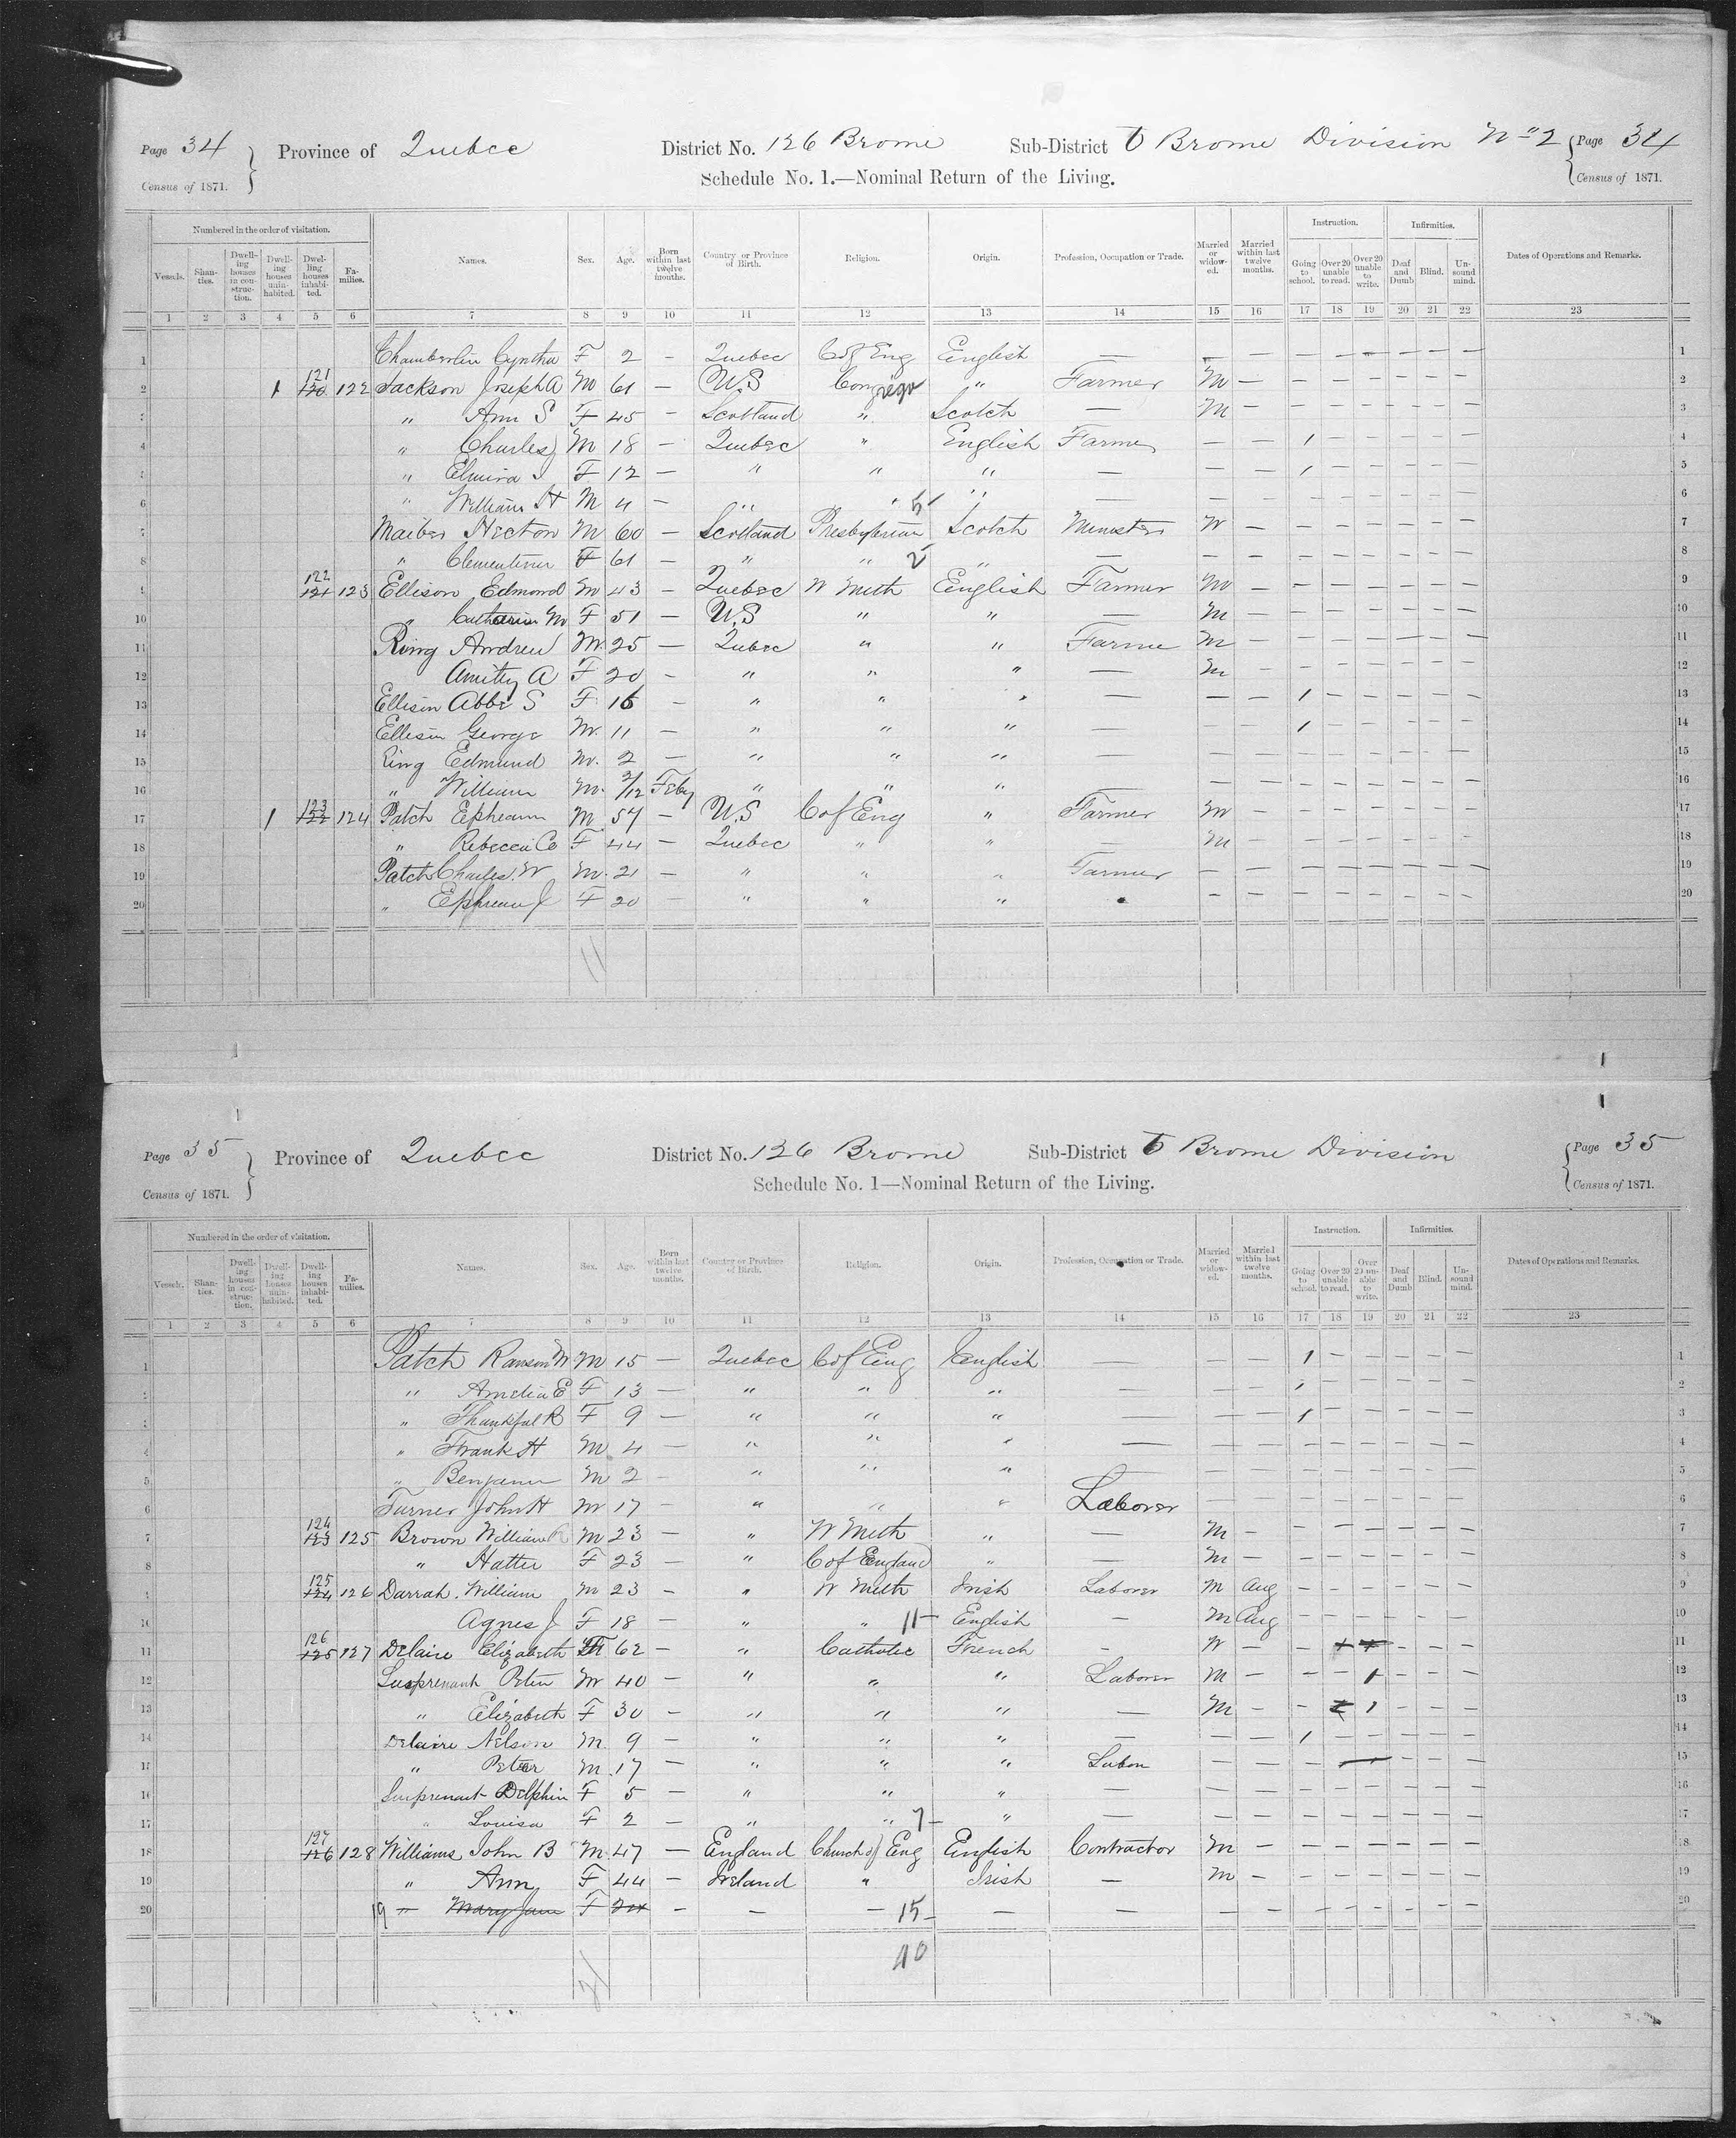 Page 34 Province of Quebec District No. 126 Brome Sub-District b Brome Division No 2 Page 34
Census of 1871. Schedule No. 1.—Nominal Return of the Living. Census of 1871.
Numbered in the order of visitation. Instruction. Infirmities.
Vessels. Shanties. Dwelling houses in construction. Dwelling houses uninhabited. Dwelling houses inhabited. Families. Names. Sex. Age. Born within last twelve months. Country or Province of Birth. Religion. Origin. Profession, Occupation or Trade. Married or widowed. Married within last twelve months. Going to school. Over 20 unable to read. Over 20 unable to write. Deaf and Dumb Blind. Unsound mind. Dates of Operations and Remarks.
1 2 3 4 5 6 7 8 9 10 11 12 13 14 15 16 17 18 19 20 21 22 23
1 Chamberlin Cyntha F 2 — Quebec C of Eng English — — — — — — — — — 1
2 1 121 120 122 Jackson Joseph A M 61 — U.S Congrega " Farmer M — — — — — — — 2
3 " Ann S F 45 — Scotland " Scotch — M — — — — — — — 3
4 " Charles M 18 — Quebec " English Farmer — — 1 — — — — — 4
5 " Elmira F 12 — " " " — — — 1 — — — — — 5
6 " William H M 4 — " " 5 " — — — — — — — — — 6
7 Hecton M 60 — Scotland Presbyterian Scotch Minister W — — — — — — — 7
8 " F 61 — " " 2 " — — — — — — — — — 8
9 122 121 123 Ellison Edmond M 43 — Quebec W Meth English Farmer M — — — — — — — 9
10 " Catharine M F 51 — U.S " " — M — — — — — — — 10
11 Ring Andrew M 25 — Quebec " " Farme M — — — — — — — 11
12 Amitty A F 20 — " " " — M — — — — — — — 12
13 Ellisin Abbi S F 16 — " " " — — — 1 — — — — — 13
14 Ellisin George M 11 — " " " — — — 1 — — — — — 14
15 Ring Edmund M 2 — " " " — — — — — — — — — 15
16 " William M 2/12 Feby " " " — — — — — — — — — 16
17 1 123 122 124 Patch Epheam M 57 — U.S C of Eng " Farmer M — — — — — — — 17
18 " Rebecca F 44 — Quebec " " — M — — — — — — — 18
19 Patch Charles W M 21 — " " " Farmer — — — — — — — — 19
20 " Ephream J F 20 — " " " — — — — — — — — 20
11
Page 35 Province of Quebec District No. 126 Brome Sub-District b Brome Division Page 35
Census of 1871. Schedule No. 1—Nominal Return of the Living. Census of 1871.
Numbered in the order of visitation. Instruction. Infirmities.
Vessels. Shanties. Dwelling houses in construction. Dwelling houses uninhabited. Dwelling houses inhabited. Families. Names. Sex. Age. Born within last twelve months. Country or Province of Birth. Religion. Origin. Profession, Occupation or Trade. Married or widowed. Married within last twelve months. Going to school. Over 20 unable to read. Over 20 unable to write. Deaf and Dumb Blind. Unsound mind. Dates of Operations and Remarks.
1 2 3 4 5 6 7 8 9 10 11 12 13 14 15 16 17 18 19 20 21 22 23
1 Patch Ransom W M 15 — Quebec C of Eng English — — 1 — — — — — 1
2 " Amelia E F 13 — " " " — — — 1 — — — — — 2
3 " Thankful R F 9 — " " " — — — 1 — — — — — 3
4 " Frank H M 4 — " " " — — — — — — — — — 4
5 " Benjamin M 2 — " " " — — — — — — — — 5
6 Turner John H M 17 — " " " Laborer — — — — — — — — 6
7 124 123 125 Brown William R M 23 — " W Meth " — M — — — — — — — 7
8 " Hatter F 23 — " C of England " — M — — — — — — — 8
9 125 124 126 Darrah William M 23 — " W Meth Irish Laborer M Aug — — — — — — 9
10 Agnes J F 18 — " " 11 English — M Aug — — — — — — 10
11 126 125 127 Delaire Elizabeth F 62 — " Catholic French — W — — 1 1 — — — 11
12 Susprenant Peter M 40 — " " " Laborer M — — — 1 — — — 12
13 " Elizabeth F 30 — " " " — M — — 1 1 — — — 13
14 Delaire Nelson M 9 — " " " — — — 1 — — — — — 14
15 " Peter M 17 — " " " Labor — — — — — — — 15
16 Susprenant Delphin F 5 — " " " — — — — — — — — — 16
17 " Louisa F 2 — " " 7 " — — — — — — — — — 17
18 127 126 128 Williams John B M 47 — England Church of Eng English Contractor M — — — — — — — 18
19 " Ann F 44 — Ireland " Irish — M — — — — — — — 19
20 19 " Mary Jane F — — — 15 — — — — — — — — — — 20
21 40